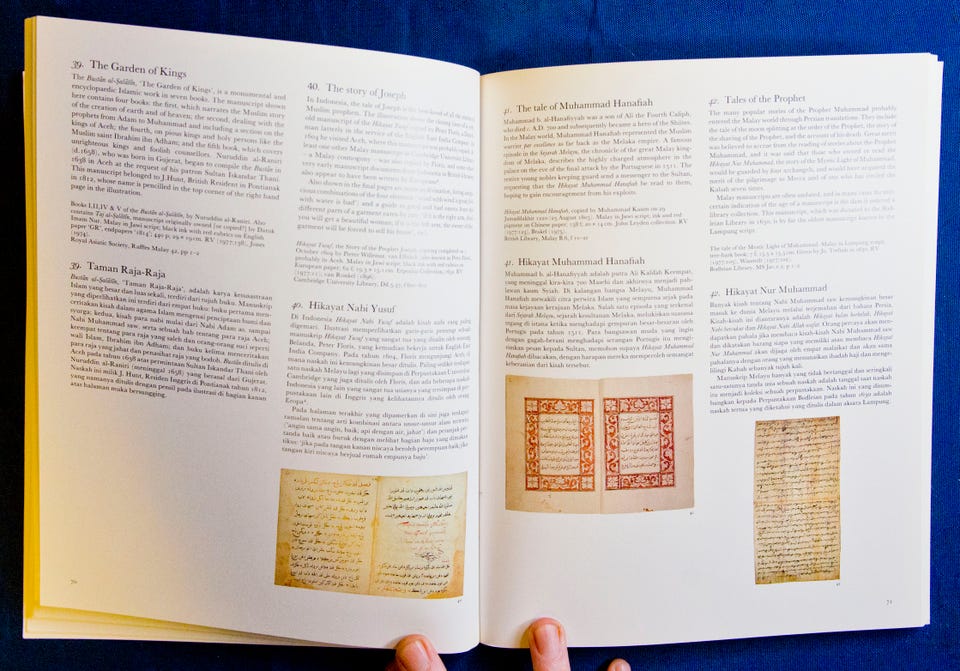 39. The Garden of Kings
The Bustān al-Salātīn, 'The Garden of Kings', is a monumental and
encyclopaedic Islamic work in seven books. The manuscript shown
here contains four books: the first, which narrates the Muslim story
of the creation of earth and of heaven; the second, dealing with the
prophets from Adam to Muhammad and including a section on the
kings of Aceh; the fourth, on pious kings and holy persons like the
Muslim saint Ibrahim ibn Adham; and the fifth book, which covers
unrighteous kings and foolish counsellors. Nuruddin al-Raniri
(d.1658), who was born in Gujerat, began to compile the Bustān in
1638 in Aceh at the request of his patron Sultan Iskandar Thani.
This manuscript belonged to J. Hunt, British Resident in Pontianak
in 1812, whose name is pencilled in the top corner of the right hand
page in the illustration.
Books I,II,IV & V of the Bustān al-Salātīn, by Nuruddin al-Raniri. Also
contains Taj al-Salātīn, manuscript originally owned [or copied?] by Datuk
Imam Nur. Malay in Jawi script; black ink with red rubrics on English
paper 'GR', endpapers '1814'; 440 p; 29 × 19 cm. RV (1977.138), Jones
(1974).
Royal Asiatic Society, Raffles Malay 42, pp 1-2
39. Taman Raja-Raja
Bustān al-Salātīn, 'Taman Raja-Raja', adalah karya kesusastraan
Islam yang besar dan luas sekali, terdiri dari tujuh buku. Manuskrip
yang diperlihatkan ini terdiri dari empat buku: buku pertama men-
ceritakan kisah dalam agama Islam mengenai penciptaan bumi dan
syurga; kedua, kisah para nabi mulai dari Nabi Adam as. sampai
Nabi Muhammad saw. serta sebuah bab tentang para raja Aceh;
keempat tentang para raja yang saleh dan orang-orang suci seperti
wali Islam, Ibrahim ibn Adham; dan buku kelima menceritakan
para raja yang jahat dan penasihat raja yang bodoh. Bustān ditulis di
Aceh pada tahun 1638 atas permintaan Sultan Iskandar Thani oleh
Nuruddin al-Raniri (meninggal 1658) yang berasal dari Gujerat.
Naskah ini milik J. Hunt, Residen Inggris di Pontianak tahun 1812,
yang namanya ditulis dengan pensil pada ilustrasi di bagian kanan
atas halaman muka bersangging.
70
40. The story of Joseph
In Indonesia, the tale of Joseph is the best-loved of all the stories of
Muslim prophets. The illustration shows the
old manuscript of the Hikayat Yusuf copied by Peter Floris, a
man latterly in the service of the English East India Company. In
1604 he visited Aceh, where
least one other Malay manuscript
– a Malay cosmology – was also
very early manuscripts
also appear to have been
Also shown in the final pages are
cious combinations of the four elements ('wind with wind is good, fire
with water is bad') and a guide to good and bad
different parts of a garment eaten by mice ('if it is the right arm,
you will get a beautiful woman; if it is the left arm, the rest of the
garment will be forced to sell his house').
Hikayat Yusuf, the Story of the Prophet Joseph, copying completed on
October 1604 by Pieter Willemsz. van Elbinck
probably in Aceh. Malay in Jawi script; black ink with red rubrics on
European paper; 62 f; 19.3 × 15.1 cm. Erpenius Collection, 1632. RV
(1977.111), van Ronkel (1896).
Cambridge University Library, Dd.5.37,
40. Hikayat Nabi Yusuf
Di Indonesia Hikayat Nabi Yusuf adalah kisah nabi yang paling
digemari. Ilustrasi memperlihatkan garis-garis penutup sebuah
manuskrip Hikayat Yusuf yang sangat tua yang ditulis oleh orang
Belanda, Peter Floris, yang kemudian bekerja untuk English East
India Company. Pada tahun 1604, Floris mengunjungi Aceh, di
mana naskah ini kemungkinan besar ditulis. Paling sedikit sebuah
satu naskah Melayu lagi yang disimpan di Perpustakaan Universitas
Cambridge yang juga ditulis oleh Floris, dan ada beberapa naskah
Indonesia yang lain yang sangat tua usianya yang tersimpan di per-
pustakaan lain di Inggris yang kelihatannya ditulis oleh orang
Eropa⁴.
Pada halaman terakhir yang dipamerkan di sini juga terdapat
ramalan tentang arti kombinasi antara unsur-unsur alam tertentu
('angin sama angin, baik; api dengan air, jahat') dan petunjuk per-
tanda baik atau buruk dengan melihat bagian baju yang dimakan
tikus: 'jika pada tangan kanan niscaya beroleh perempuan baik; jika
tangan kiri niscaya berjual rumah empunya baju'.
40
41. The tale of Muhammad Hanafiah
Muhammad b. al-Hanafiyyah was a son of Ali the Fourth Caliph,
who died c. A.D. 700 and subsequently became a hero of the Shiites.
In the Malay world, Muhammad Hanafiah represented the Muslim
warrior par excellence as far back as the Melaka empire. A famous
episode in the Sejarah Melayu, the chronicle of the great Malay king-
dom of Melaka, describes the highly charged atmosphere in the
palace on the eve of the final attack by the Portuguese in 1511. The
restive young nobles keeping guard send a messenger to the Sultan,
requesting that the Hikayat Muhammad Hanafiah be read to them,
hoping to gain encouragement from his exploits.
Hikayat Muhammad Hanafiah, copied by Muhammad Kasim on 29
Jumadilakhir 1220 (25 August 1805). Malay in Jawi script; ink and red
pigment on Chinese paper; 138 f; 21 × 14 cm. John Leyden collection. RV
(1977.105), Brakel (1975).
British Library, Malay B.6, f 1v-2r
41. Hikayat Muhammad Hanafiah
Muhammad b. al-Hanafiyyah adalah putra Ali Kalidah Keempat,
yang meninggal kira-kira 700 Masehi dan akhirnya menjadi pah-
lawan kaum Syiah. Di kalangan bangsa Melayu, Muhammad
Hanafiah mewakili citra perwira Islam yang sempurna sejak pada
masa kejayaan kerajaan Melaka. Salah satu episoda yang terkenal
dari Sejarah Melayu, sejarah kesultanan Melaka, melukiskan suasana
tegang di istana ketika menghadapi gempuran besar-besaran oleh
Portugis pada tahun 1511. Para bangsawan muda yang ingin
dengan gagah-berani menghadapi serangan Portugis itu mengi-
rimkan pesan kepada Sultan, memohon supaya Hikayat Muhammad
Hanafiah dibacakan, dengan harapan mereka memperoleh semangat
keberanian dari kisah tersebut.
41
42. Tales of the Prophet
The many popular stories of the Prophet Muhammad probably
entered the Malay world through Persian translations. They include
the tale of the moon splitting at the order of the Prophet, the story of
the shaving of the Prophet, and the account of his death. Great merit
was believed to accrue from the reading of stories about the Prophet
Muhammad, and it was said that those who owned or read the
Hikayat Nur Muhammad, the story of the Mystic Light of Muhammad,
would be guarded by four archangels, and would have acquired the
merit of the pilgrimage to Mecca and of one who has circled the
Kabah seven times.
Malay manuscripts are often undated, and in many cases the only
certain indication of the age of a manuscript is the date it entered a
library collection. This manuscript, which was donated to the Bod-
leian Library in 1630, is by far the oldest manuscript known in the
Lampung script.
The tale of the Mystic Light of Muhammad. Malay in Lampung script;
tree-bark book; 7 f; 13.5 × 5.5 cm. Given by Jo. Trefusis in 1630. RV
(1977.105), Wieringa
Bodleian Library, MS Jav.e.2, p 1-2
42. Hikayat Nur Muhammad
Banyak kisah tentang Nabi Muhammad saw. kemungkinan besar
masuk ke dunia Melayu melalui terjemahan dari bahasa Persia.
Kisah-kisah ini diantaranya adalah Hikayat bulan berbelah, Hikayat
Nabi bercukur dan Hikayat Nabi Allah wafat. Orang percaya akan men-
dapatkan pahala jika membaca kisah-kisah Nabi Muhammad saw.
dan dikatakan barang siapa yang memiliki atau membaca Hikayat
Nur Muhammad akan dijaga oleh empat malaikat dan akan sama
pahalanya dengan orang yang menunaikan ibadah haji dan menge-
lilingi Kabah sebanyak tujuh kali.
Manuskrip Melayu banyak yang tidak bertanggal dan seringkali
satu-satunya tanda usia sebuah naskah adalah tanggal saat naskah
itu menjadi koleksi sebuah perpustakaan. Naskah ini yang disum-
bangkan kepada Perpustakaan Bodleian pada tahun 1630 adalah
naskah tertua yang diketahui yang ditulis dalam aksara Lampung.
42
71